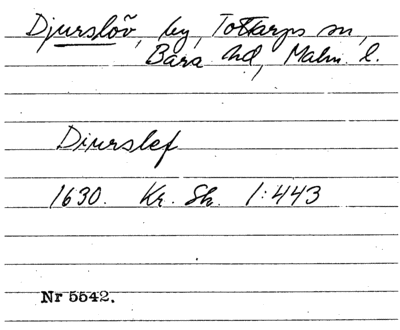 Djurslöv, by, Tottarps sn,
Bara hd, Malm. l.
Diurslef
1630. Kr. Sk. 1:443
Nr 5542.